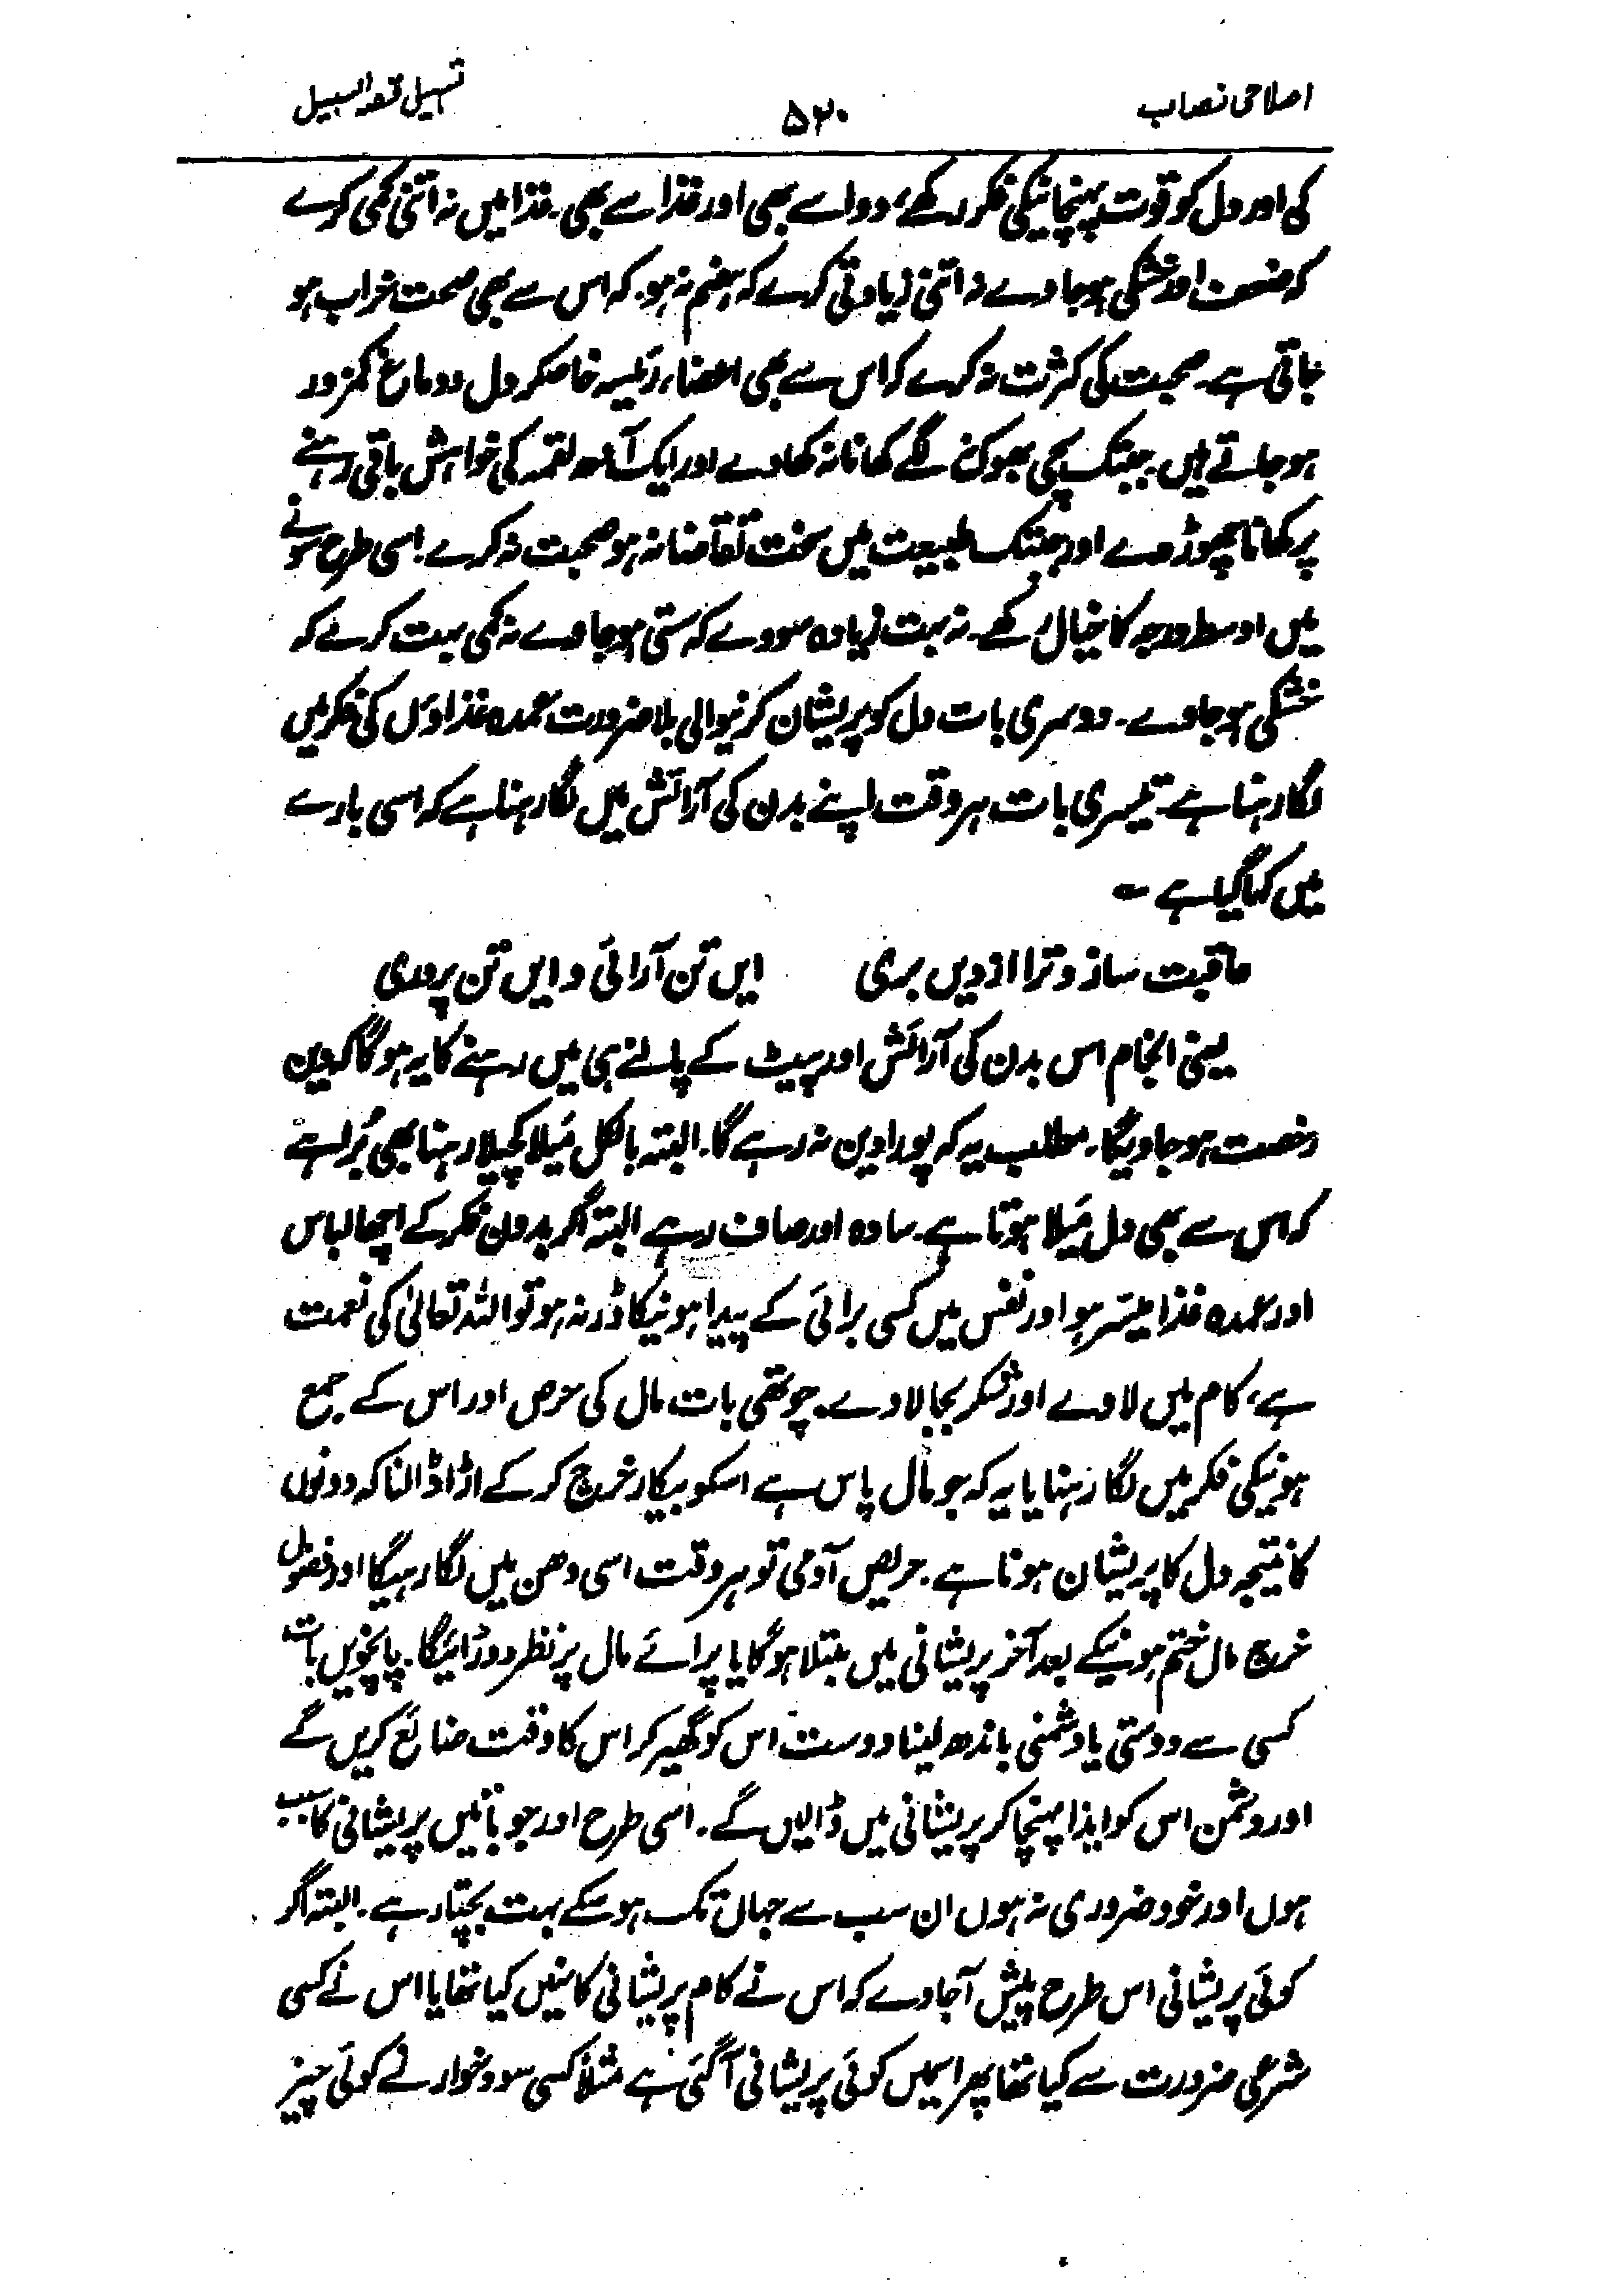 اصلاحی نصاب ۵۲۰ تسہیل قصد السبیل
کی اور دل کو قوت پہنچانیکی فکر رکھے، دوا سے بھی اور غذا سے بھی۔ غذا میں نہ اتنی کمی کرے
کہ ضعف اور خشکی ہو جاوے نہ اتنی زیادتی کرے کہ ہضم نہ ہو۔ کہ اس سے بھی صحت خراب ہو
جاتی ہے۔ صحبت کی کثرت نہ کرے کہ اس سے بھی اعضاء رئیسہ خاصکر دل و دماغ کمزور
ہو جاتے ہیں۔ جبتک سچی بھوک نہ لگے کھانا نہ کھاوے اور ایک آدھ لقمہ کی خواہش باقی رہنے
پر کھانا چھوڑ دے اور جبتک طبیعت میں سخت تقاضا نہ ہو صحبت نہ کرے۔ اسی طرح سونے
میں اوسط درجہ کا خیال رکھے۔ نہ بہت زیادہ سووے کہ سستی ہو جاوے نہ کمی بہت کرے کہ
خشکی ہو جاوے۔ دوسری بات دل کو پریشان کرنیوالی بلا ضرورت عمدہ غذاؤں کی فکر میں
لگا رہنا ہے۔ تیسری بات ہر وقت اپنے بدن کی آرائش میں لگا رہنا ہے کہ اسی بارے
میں کہا گیا ہے ؎
عاقبت سازد ترا از دیں بری ایں تن آرائی و ایں تن پروری
یعنی انجام اس بدن کی آرائش اور پیٹ کے پالنے ہی میں رہنے کا یہ ہو گا کہ دین
رخصت ہو جاویگا۔ مطلب یہ کہ پورا دین نہ رہے گا۔ البتہ بالکل میلا کچیلا رہنا بھی بُرا ہے
کہ اس سے بھی دل میلا ہوتا ہے۔ سادہ اور صاف رہے البتہ اگر بدون فکر کے اچھا لباس
اور عمدہ غذا میسّر ہو اور نفس میں کسی برائی کے پیدا ہونیکا ڈر نہ ہو تو اللہ تعالیٰ کی نعمت
ہے، کام میں لاوے اور شکر بجا لاوے۔ چوتھی بات مال کی حرص اور اس کے جمع
ہونیکی فکر میں لگا رہنا یا یہ کہ جو مال پاس ہے اسکو بیکار خرچ کر کے اڑا ڈالنا کہ دونوں
کا نتیجہ دل کا پریشان ہونا ہے۔ حریص آدمی تو ہر وقت اسی دھن میں لگا رہیگا اور فضول
خرچ مال ختم ہونیکے بعد آخر پریشانی میں مبتلا ہو گا یا پرائے مال پر نظر دوڑائیگا۔ پانچویں بات
کسی سے دوستی یا دشمنی باندھ لینا دوست اس کو گھیر کر اس کا وقت ضائع کریں گے
اور دشمن اس کو ایذا پہنچا کر پریشانی میں ڈالیں گے۔ اسی طرح اور جو باتیں پریشانی کا سبب
ہوں اور خود ضروری نہ ہوں ان سب سے جہاں تک ہو سکے بہت بچتا رہے۔ البتہ اگر
کوئی پریشانی اس طرح پیش آجاوے کہ اس نے کام پریشانی کا نہیں کیا تھا یا اس نے کسی
شرعی ضرورت سے کیا تھا پھر اسمیں کوئی پریشانی آ گئی ہے مثلاً کسی سود خوار نے کوئی چیز